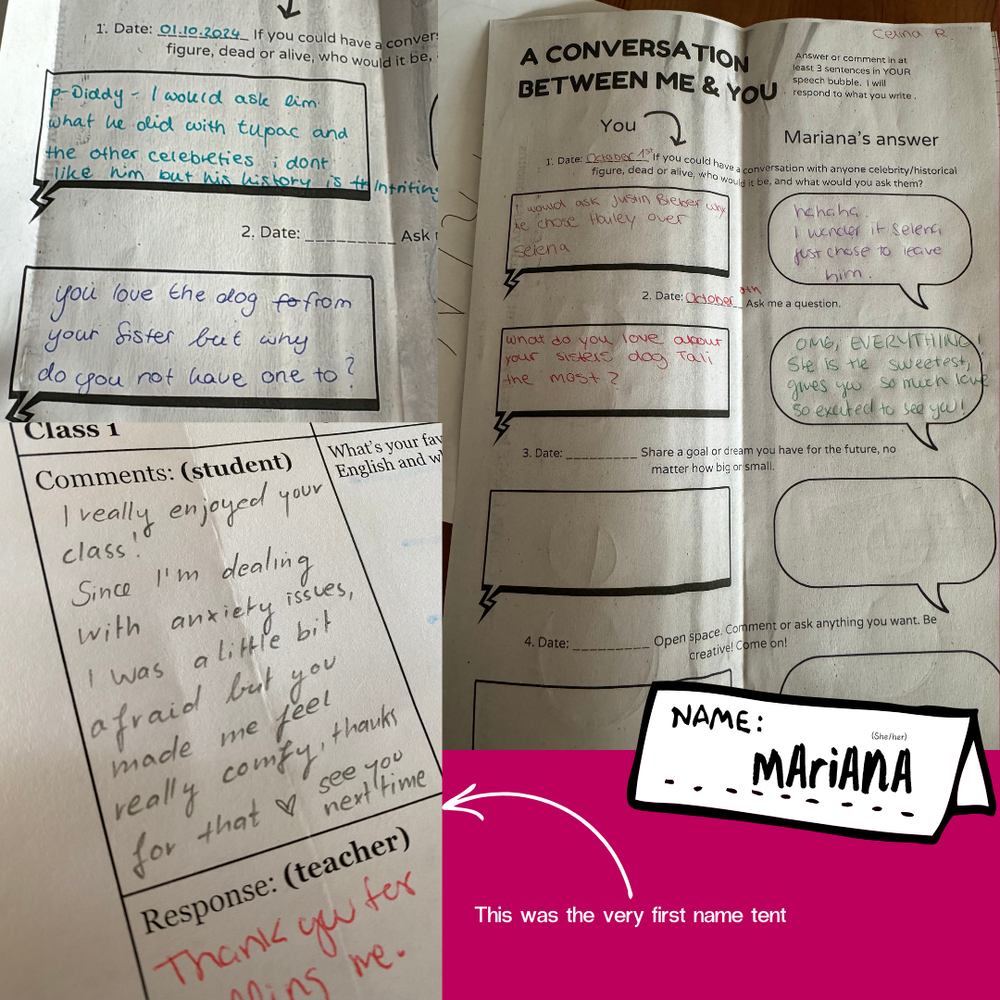 1. Date: 01.10.2024 If you could have a conver
figure, dead or alive, who would it be,
p-Diddy - I would ask him
what he did with tupac and
the other celebreties i dont
like him but his history is intriting
2. Date: __________ Ask
you love the dog from
your sister but why
do you not have one to?
Class 1
Comments: (student)
I really enjoyed your
class!
Since I'm dealing
with anxiety issues,
I was a little bit
afraid but you
made me feel
really comfy, thanks
for that ♡ see you
next time
What's your fav
English and w
Response: (teacher)
Thank you for
me.
Celina R.
A CONVERSATION
BETWEEN ME & YOU
Answer or comment in at
least 3 sentences in YOUR
speech bubble. I will
respond to what you write.
You
Mariana's answer
1. Date: October 1st If you could have a conversation with any celebrity/historical
figure, dead or alive, who would it be, and what would you ask them?
I would ask Justin Bieber why
he chose Hailey over
Selena
hahaha.
I wonder if Selena
just chose to leave
him.
2. Date: October 8th Ask me a question.
What do you love about
your sisters dog Tali
the most?
OMG, EVERYTHING!
She is the sweetest,
gives you so much love
so excited to see you!
3. Date: __________ Share a goal or dream you have for the future, no
matter how big or small.
4. Date: __________ Open space. Comment or ask anything you want. Be
creative! Come on!
NAME:
(She/her)
MARiANA
This was the very first name tent